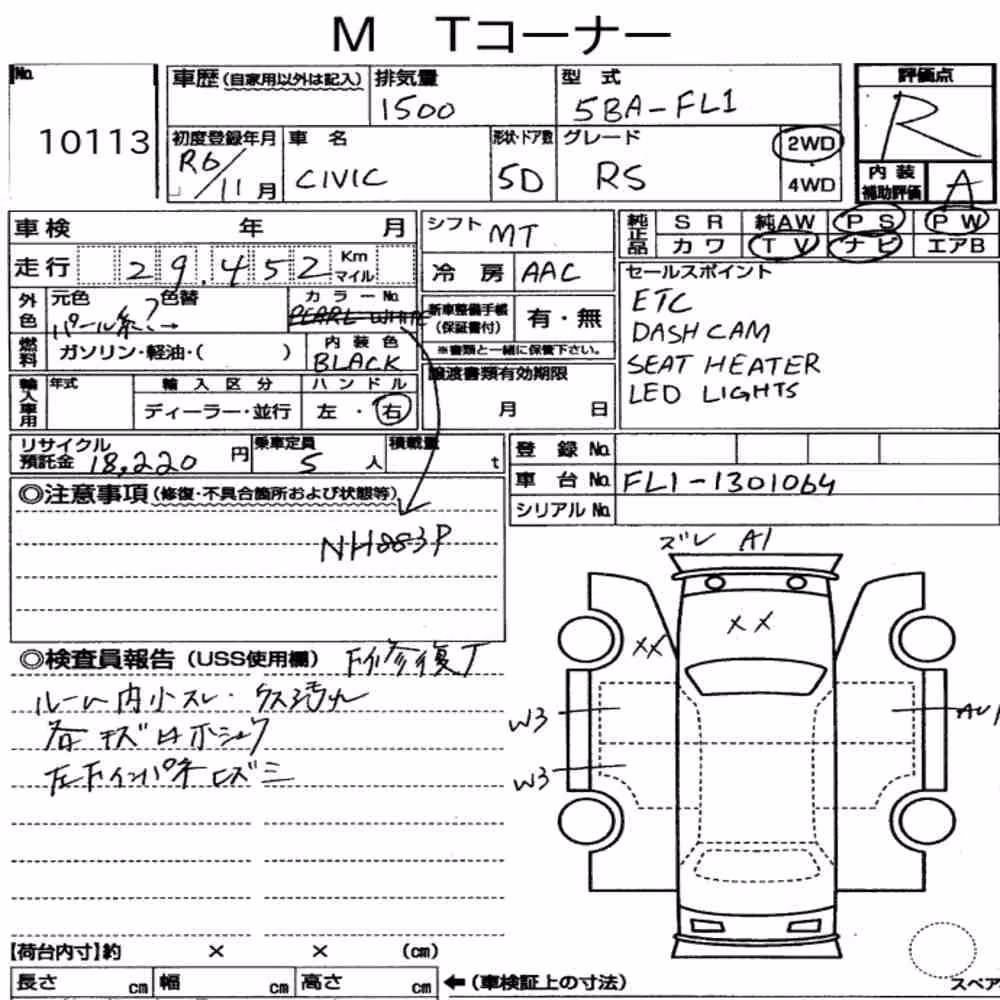 M Tコーナー
No.
10113
車歴(自家用以外は記入)
排気量
1500
型式
5BA-FL1
評価点
R
初度登録年月
R6/11月
車名
CIVIC
形状・ドア数
5D
グレード
RS
2WD
4WD
内装
補助評価
A
車検 年 月
シフト
MT
純正品
SR 純AW PS PW
カワ TV ナビ エアB
走行 29,452 Km
マイル
冷房 AAC
セールスポイント
ETC
DASH CAM
SEAT HEATER
LED LIGHTS
外色
元色 色替
カラーNo.
PEARL WHITE
新車整備手帳
(保証書付)
有・無
※書類と一緒に保管下さい。
燃料
ガソリン・軽油・( )
内装色
BLACK
譲渡書類有効期限
月 日
輸入車用
年式
輸入区分
ディーラー・並行
ハンドル
左・右
リサイクル
預託金 18,220 円
乗車定員
5人
積載量
t
登録No.
車台No. FL1-1301064
シリアルNo.
◎注意事項(修復・不具合箇所および状態等)
NH883P
ズレ A1
XX
XX
W3
W3
◎検査員報告(USS使用欄)
ルーム内小スレ・
【荷台内寸】約 × × (cm)
長さ cm 幅 cm 高さ cm
←(車検証上の寸法)
スペア